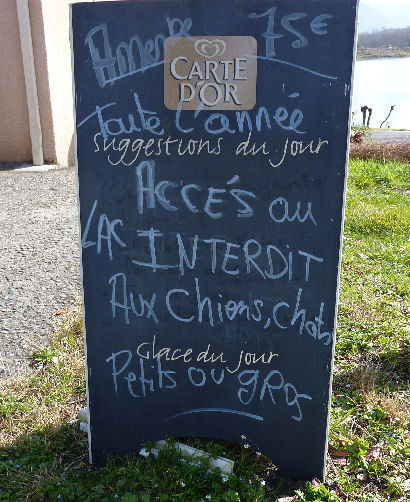 Amende 75€
CARTE
D'OR
Toute l'année
suggestions du jour
Accès au
LAC INTERDIT
Aux chiens, chats
Glace du jour
Petits ou gros